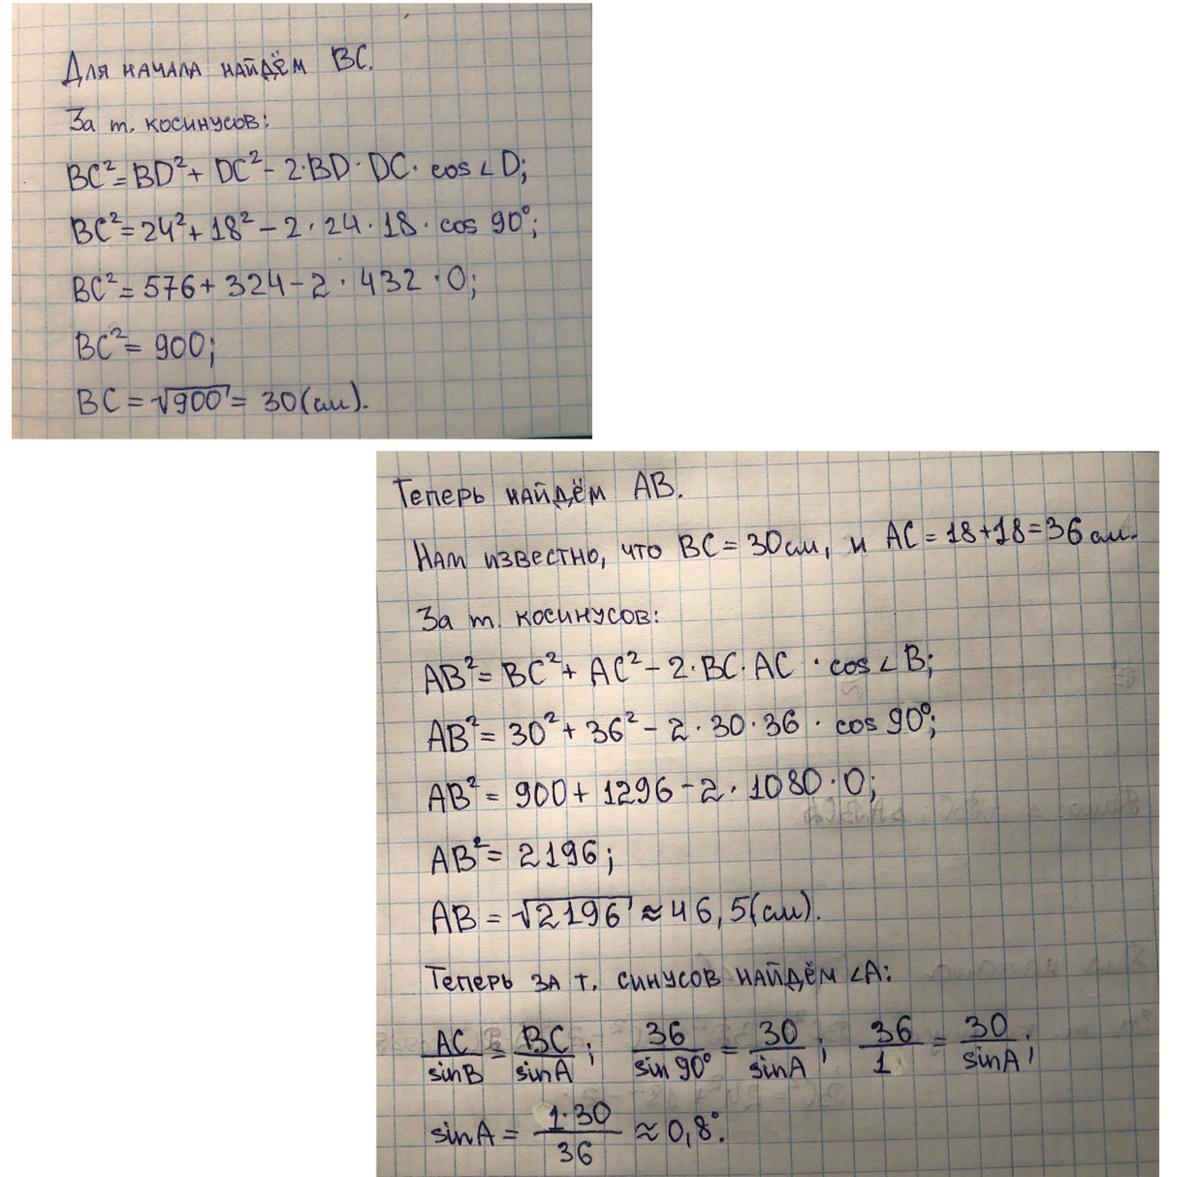 Для начала найдём BC.
За т. косинусов:
BC²=BD²+DC²-2·BD·DC·cos∠D;
BC²=24²+18²-2·24·18·cos 90°;
BC²=576+324-2·432·0;
BC²=900;
BC=√900=30(см).
Теперь найдём AB.
Нам известно, что BC=30см, и AC=18+18=36см.
За т. косинусов:
AB²=BC²+AC²-2·BC·AC·cos∠B;
AB²=30²+36²-2·30·36·cos 90°;
AB²=900+1296-2·1080·0;
AB²=2196;
AB=√2196≈46,5(см).
Теперь за т. синусов найдём ∠A:
AC/sinB=BC/sinA; 36/sin 90°=30/sinA; 36/1=30/sinA;
sinA=1·30/36≈0,8°.